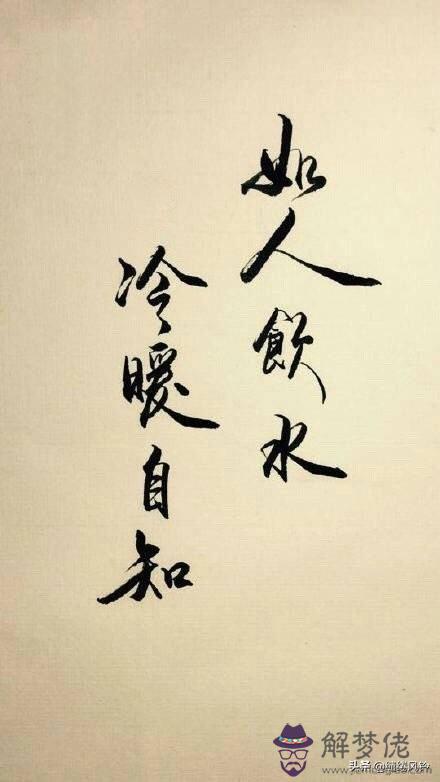 如人飲水
冷暖自知
解梦佬
头条@